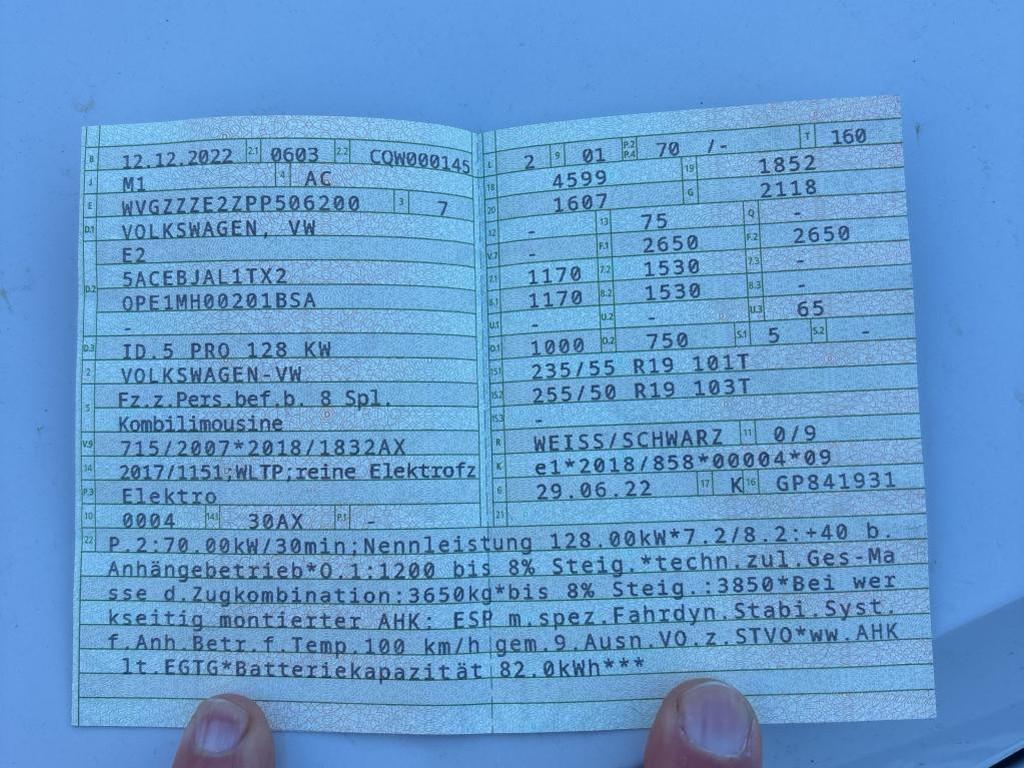 B 12.12.2022 2.1 0603 2.2 CQW000145
J M1 4 AC
E WVGZZZE2ZPP506200 3 7
D.1 VOLKSWAGEN, VW
E2
D.2 5ACEBJAL1TX2
OPE1MH00201BSA
-
D.3 ID.5 PRO 128 KW
2 VOLKSWAGEN-VW
5 Fz.z.Pers.bef.b. 8 Spl.
Kombilimousine
V.9 715/2007*2018/1832AX
14 2017/1151;WLTP;reine Elektrofz
P.3 Elektro
10 0004 14.1 30AX P.1 -
L 2 9 01 P.2 P.4 70 /- T 160
18 4599 19 1852
20 1607 G 2118
12 - 13 75 Q -
V.7 - F.1 2650 F.2 2650
7.1 1170 7.2 1530 7.3 -
8.1 1170 8.2 1530 8.3 -
U.1 - U.2 - U.3 65
O.1 1000 O.2 750 S.1 5 S.2 -
15.1 235/55 R19 101T
15.2 255/50 R19 103T
15.3 -
R WEISS/SCHWARZ 11 0/9
K e1*2018/858*00004*09
6 29.06.22 17 K 16 GP841931
21
22 P.2:70.00kW/30min;Nennleistung 128.00kW*7.2/8.2:+40 b.
Anhängebetrieb*O.1:1200 bis 8% Steig.*techn.zul.Ges-Ma
sse d.Zugkombination:3650kg*bis 8% Steig.:3850*Bei wer
kseitig montierter AHK: ESP m.spez.Fahrdyn.Stabi.Syst.
f.Anh.Betr.f.Temp.100 km/h gem.9.Ausn.VO.z.STVO*ww.AHK
lt.EGTG*Batteriekapazität 82.0kWh***